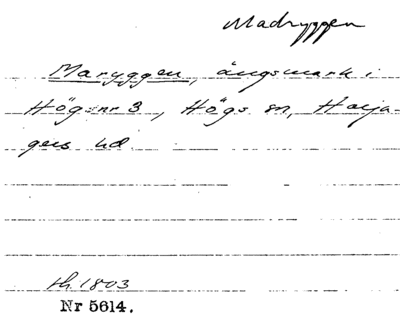 Madryggen
Maryggen, ängsmark i
Högs nr 3, Högs sn, Harja-
gers hd
th. 1803
Nr 5614.